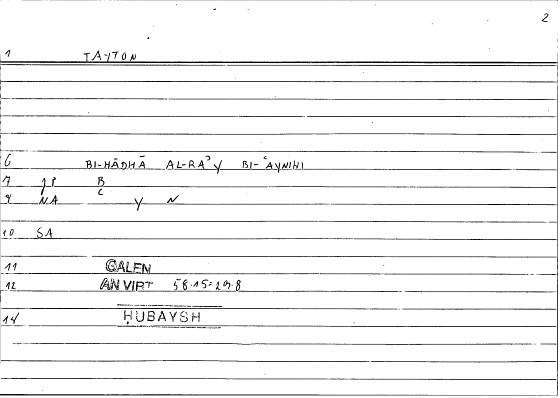 2
1 TAYTON
6 BI-HĀDHĀ AL-RAʾY BI-ʿAYNIHI
7 JP B
8 NA C Y N
10 SA
11 GALEN
12 AN VIRT 58.15=29.8
14 ḤUBAYSH